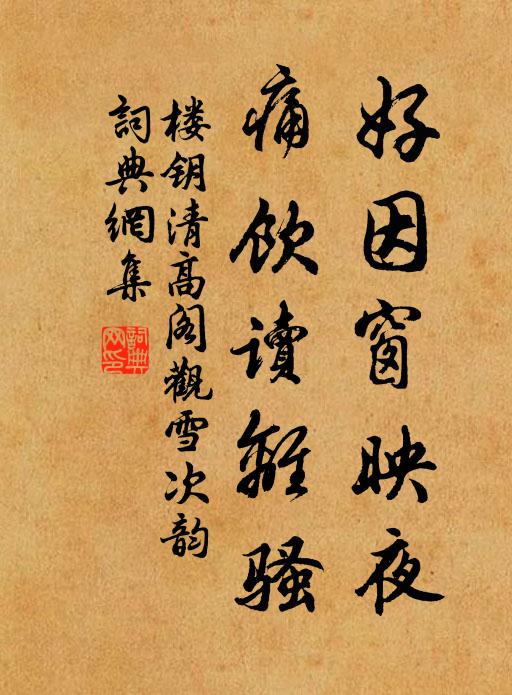 好因窗映夜
痛饮读離骚
楼钥清高阁觀雪次韵
詞典網集
詞典網印